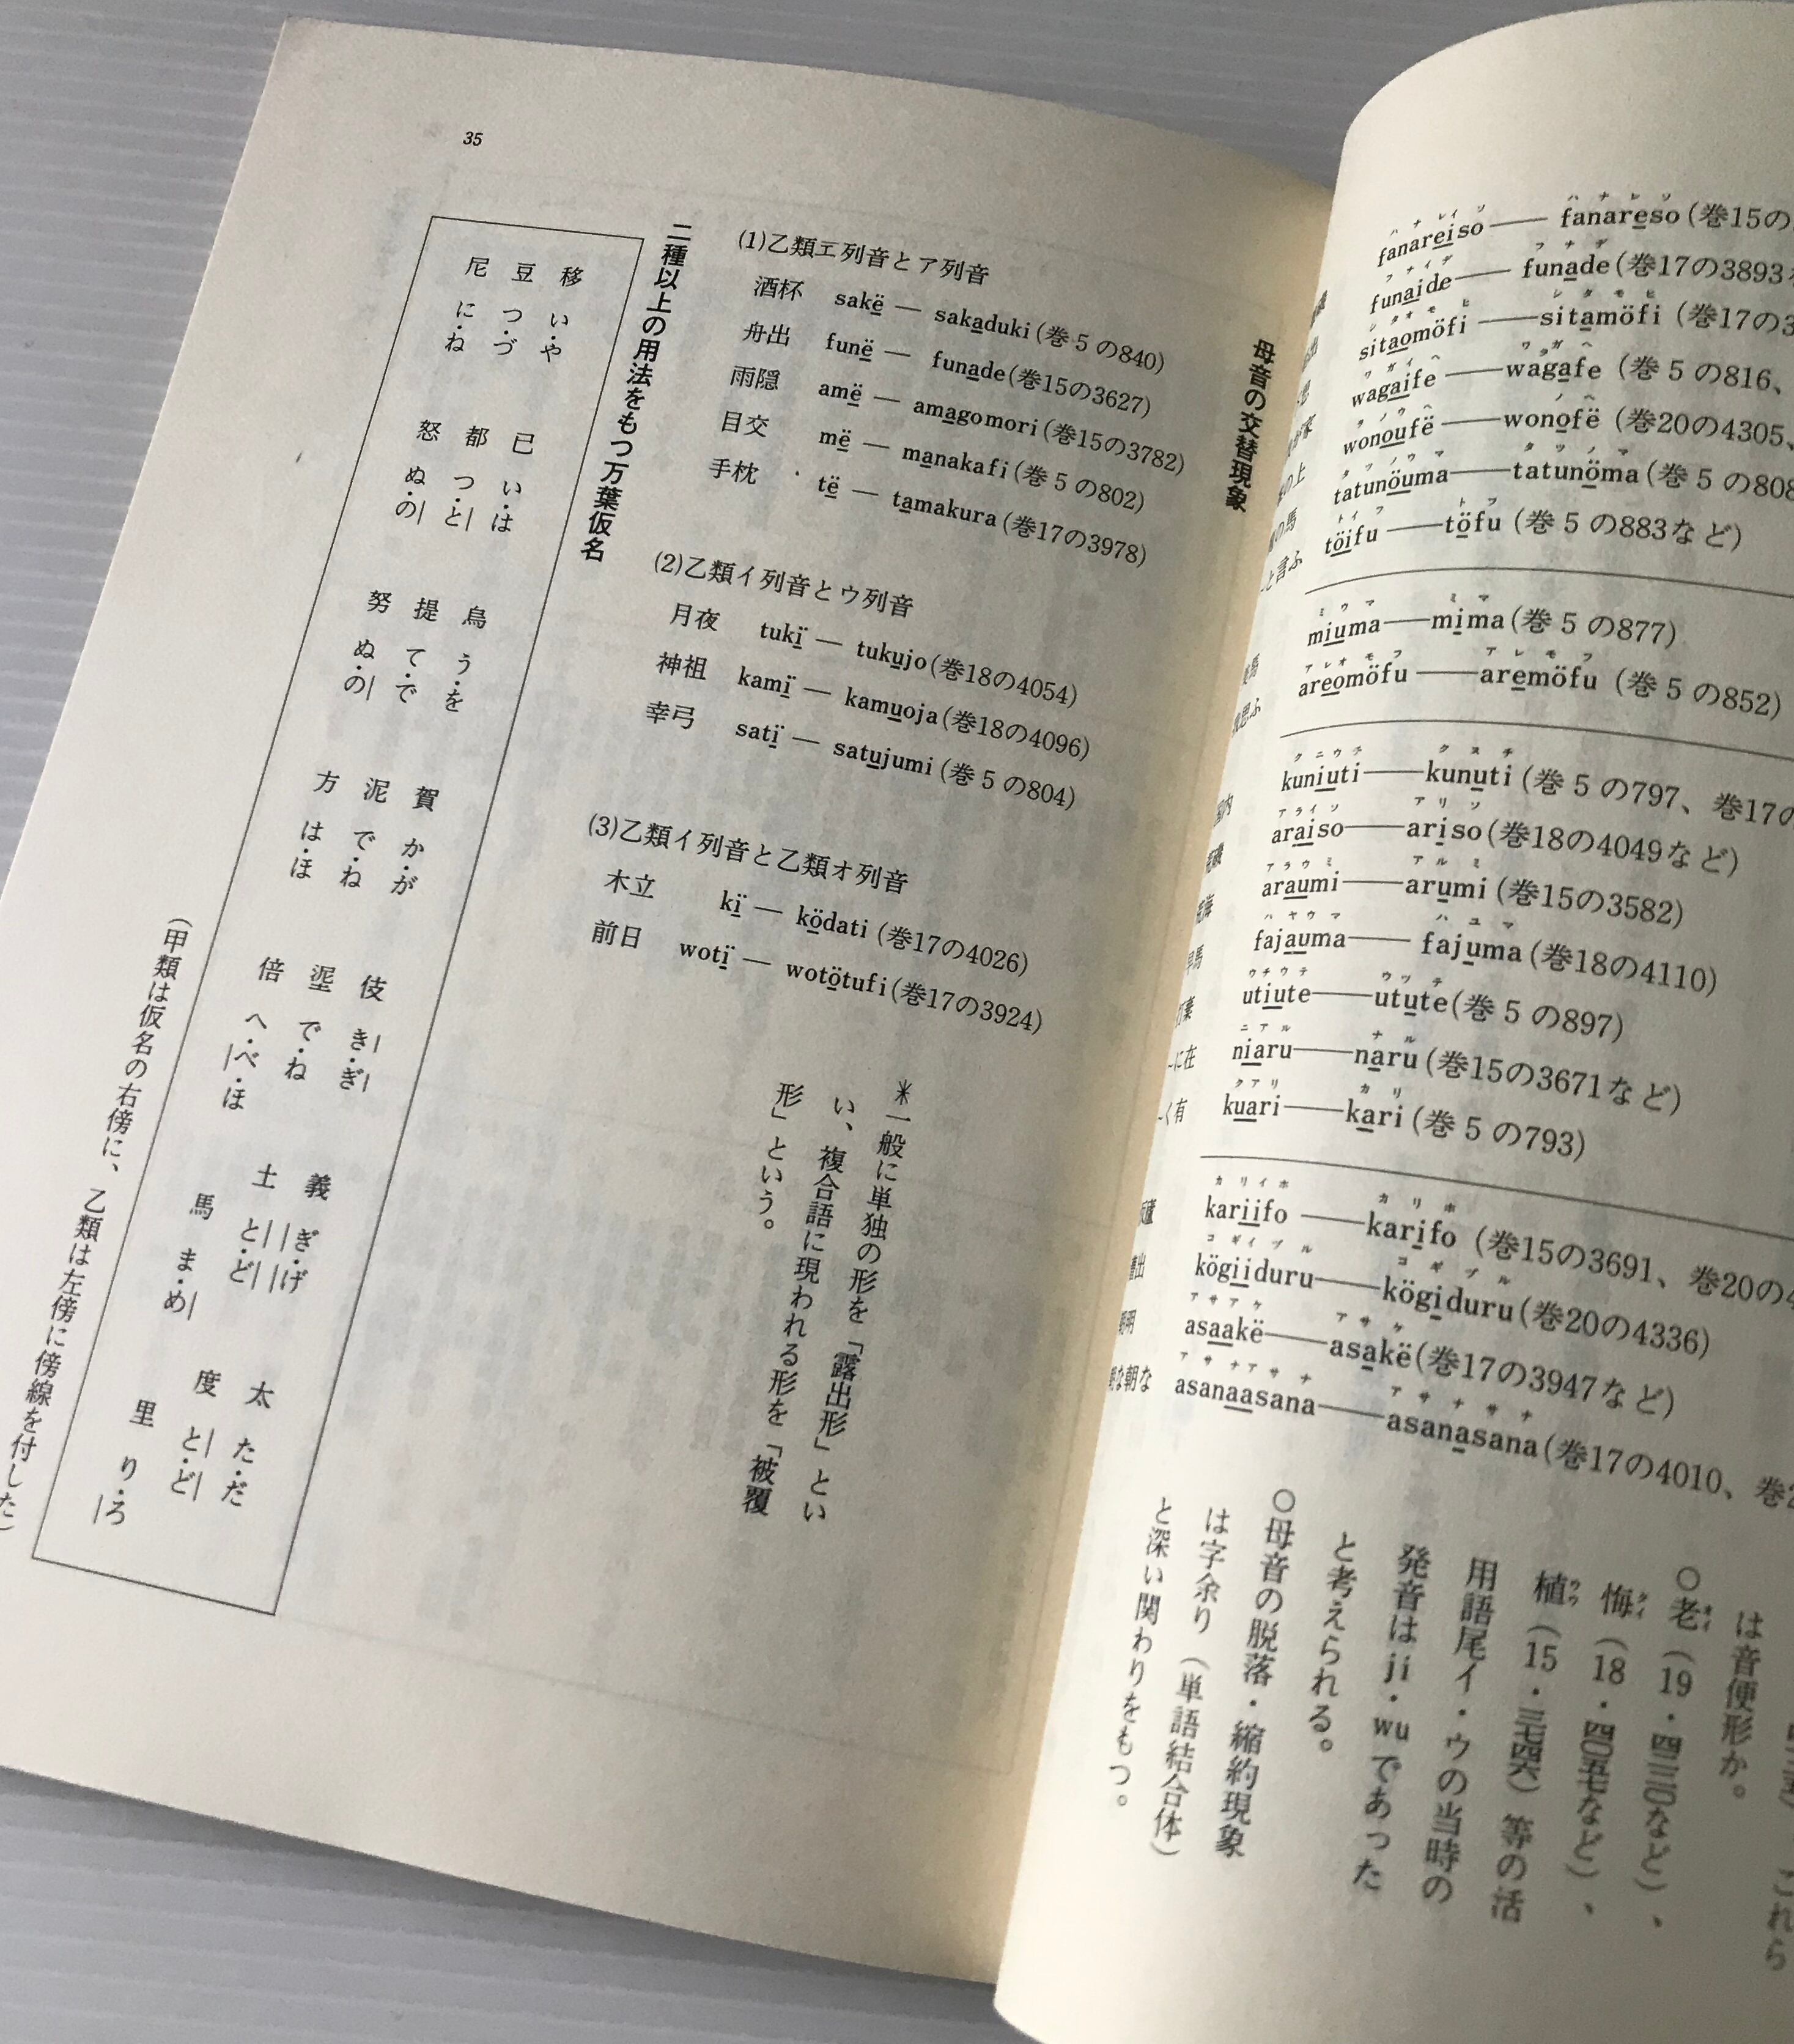 fanareiso — fanareso (巻15の
funaide — funade (巻17の3893
sitaomöfi — sitamöfi (巻17の3
wagaife — wagafe (巻5の816、
wonoufë — wonofë (巻20の4305、
tatunöuma — tatunöma (巻5の808
töifu — töfu (巻5の883など)
miuma — mima (巻5の877)
areomöfu — aremöfu (巻5の852)
kuniuti — kunuti (巻5の797、巻17の
araiso — ariso (巻18の4049など)
araumi — arumi (巻15の3582)
fajauma — fajuma (巻18の4110)
utiute — utute (巻5の897)
niaru — naru (巻15の3671など)
kuari — kari (巻5の793)
kariifo — karifo (巻15の3691、巻20の4
kögiiduru — kögiduru (巻20の4336)
asaakë — asakë (巻17の3947など)
asanaasana — asanasana (巻17の4010、巻2
これら
は音便形か。
○老オイ(19・四二二〇など)、
悔クイ(18・四〇五七など)、
植ウウ(15・三七四六)等の活
用語尾イ・ウの当時の
発音はji・wuであった
と考えられる。
○母音の脱落・縮約現象
は字余り(単語結合体)
と深い関わりをもつ。
母音の交替現象
(1)乙類エ列音とア列音
酒杯 sakë — sakaduki (巻5の840)
舟出 funë — funade (巻15の3627)
雨隠 amë — amagomori (巻15の3782)
目交 më — manakafi (巻5の802)
手枕 të — tamakura (巻17の3978)
(2)乙類イ列音とウ列音
月夜 tukï — tukujo (巻18の4054)
神祖 kamï — kamuoja (巻18の4096)
幸弓 satï — satujumi (巻5の804)
(3)乙類イ列音と乙類オ列音
木立 kï — ködati (巻17の4026)
前日 wotï — wotötufi (巻17の3924)
*一般に単独の形を「露出形」とい
い、複合語に現われる形を「被覆
形」という。
二種以上の用法をもつ万葉仮名
移 い・や 已 い・は 烏 う・を 賀 か・が 伎 き・ぎ 義 ぎ・げ 太 た・だ
豆 つ・づ 都 つ・と 提 て・で 泥 で・ね 埿 で・ね 土 と・ど 度 と・ど
尼 に・ね 怒 ぬ・の 努 ぬ・の 方 は・ほ 倍 へ・べ・ほ 馬 ま・め 里 り・ろ
(甲類は仮名の右傍に、乙類は左傍に傍線を付した)
35